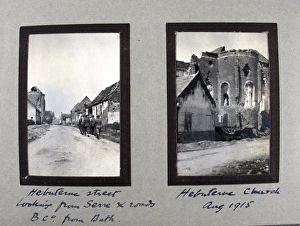 Hebuterne street
Looking from Serre X roads
B Co from Bath.
Hebuterne Church
Aug 1915